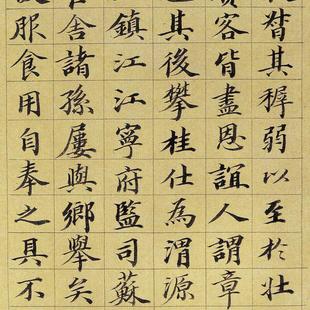 其穉弱以至於壯
客皆盡恩誼人謂章
其後攀桂仕為渭源
鎮江江寧府監司蘇
舍諸孫屢與鄉舉矣
服食用自奉之具不